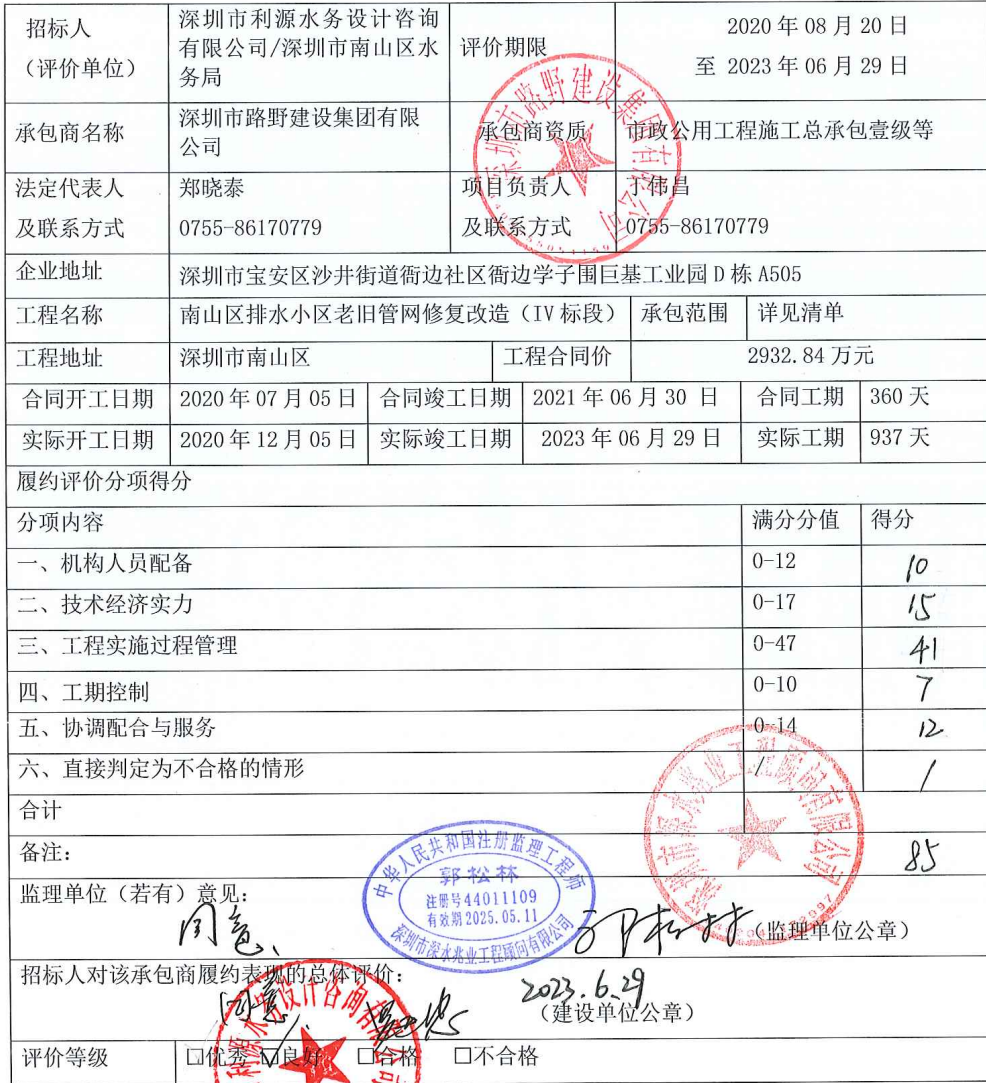 招标人
（评价单位）
深圳市利源水务设计咨询
有限公司/深圳市南山区水
务局
评价期限
2020 年 08 月 20 日
至 2023 年 06 月 29 日
承包商名称
深圳市路野建设集团有限
公司
承包商资质
市政公用工程施工总承包壹级等
法定代表人
及联系方式
郑晓泰
0755-86170779
项目负责人
及联系方式
伟昌
0755-86170779
企业地址
深圳市宝安区沙井街道衙边社区衙边学子围巨基工业园 D 栋 A505
工程名称
南山区排水小区老旧管网修复改造（IV 标段）
承包范围
详见清单
工程地址
深圳市南山区
工程合同价
2932.84 万元
合同开工日期
2020 年 07 月 05 日
合同竣工日期
2021 年 06 月 30 日
合同工期
360 天
实际开工日期
2020 年 12 月 05 日
实际竣工日期
2023 年 06 月 29 日
实际工期
937 天
履约评价分项得分
分项内容
满分分值
得分
一、机构人员配备
0-12
10
二、技术经济实力
0-17
15
三、工程实施过程管理
0-47
41
四、工期控制
0-10
7
五、协调配合与服务
0-14
12
六、直接判定为不合格的情形
/
/
合计
备注：
85
监理单位（若有）意见：
同意、
（监理单位公章）
中华人民共和国注册监理工程师
郭松林
注册号44011109
有效期2025.05.11
深圳市深水兆业工程顾问有限公司
深圳市路野建设集团有限公司
深圳市深水兆业工程顾问有限公司
招标人对该承包商履约表现的总体评价：
同意
2023.6.29
（建设单位公章）
利源水务设计咨询有限公司
评价等级
□优秀 ☑良好 □合格 □不合格